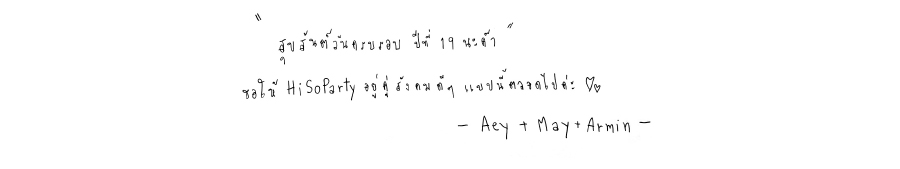 "สุขสันต์วันครบรอบ ปีที่ 19 นะค้า"
ขอให้ HiSoParty อยู่คู่สังคมดีๆ แบบนี้ตลอดไปค่ะ ♡♡
- Aey + May + Armin -